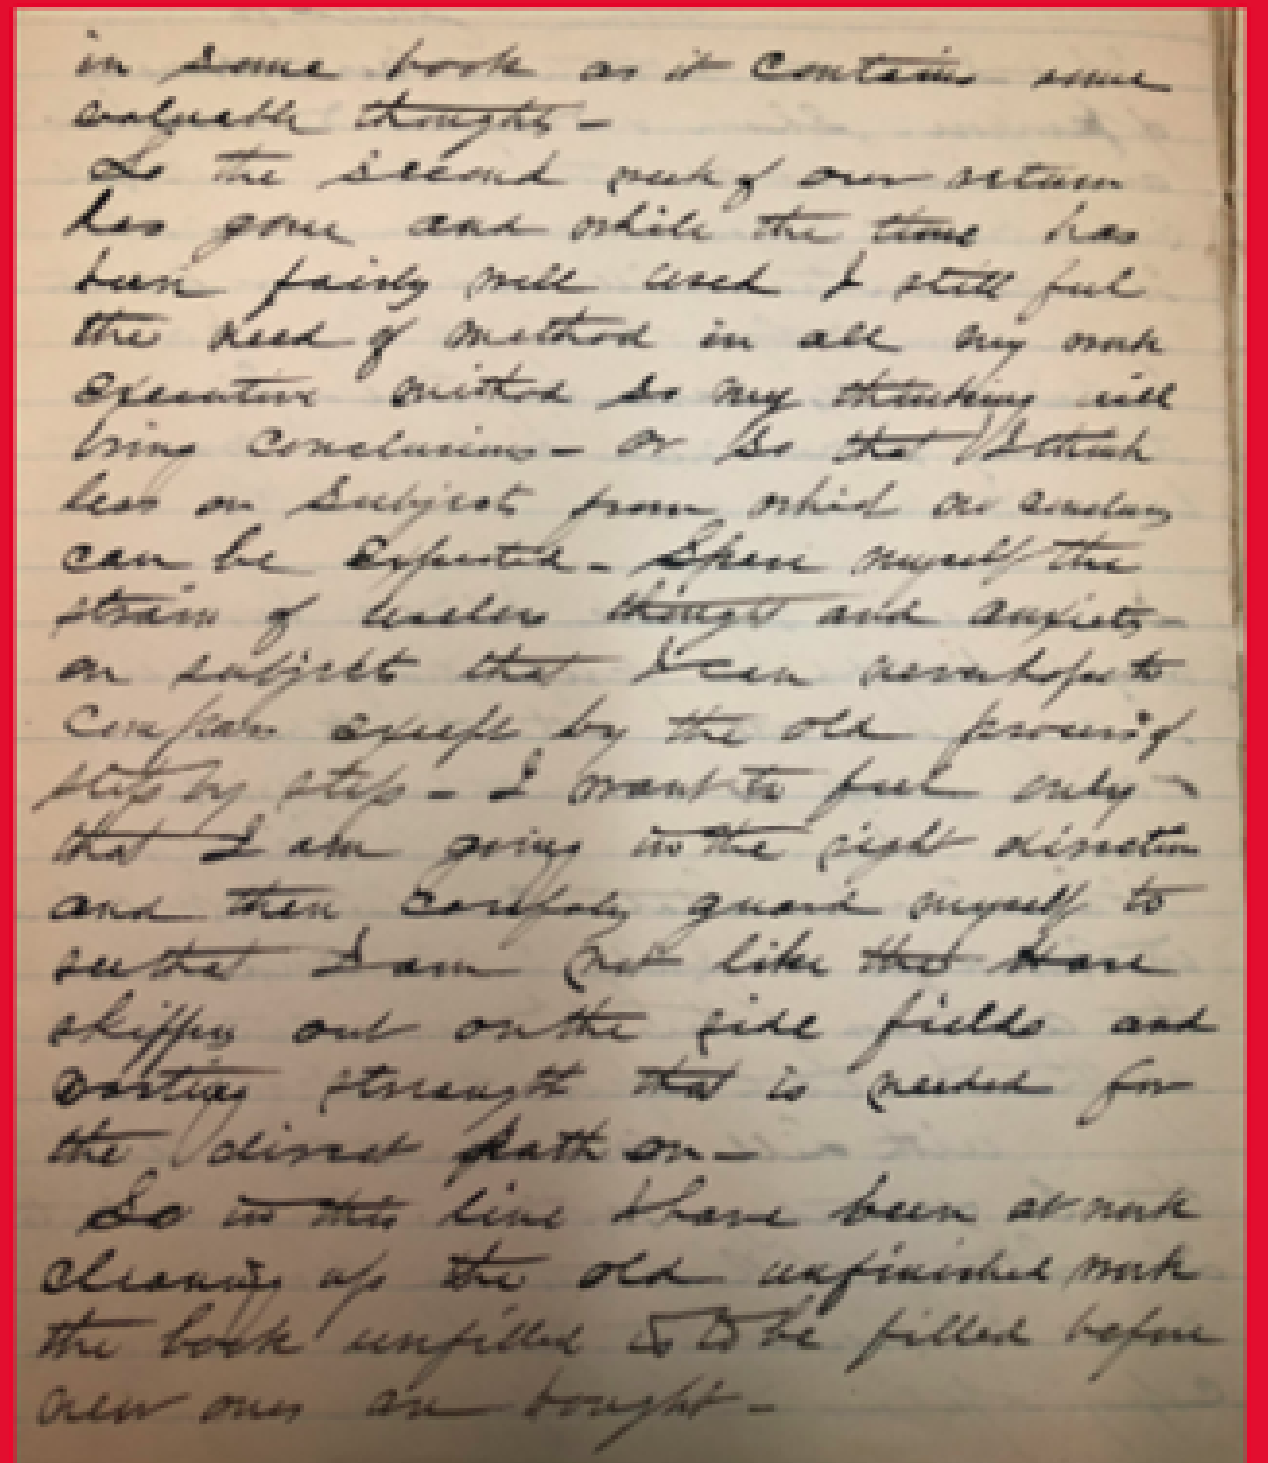 in some book as it contains some
valuable thoughts -
So the second week of our return
has gone and while the time has
been fairly well used I still feel
the need of method in all my work
executive method so my thinking will
bring conclusions - or so that I think
less on subjects from which no conclusions
can be expected - Spare myself the
strain of useless thought and anxiety
on subjects that I can never hope to
compass except by the old
step by step - I want to feel only
that I am going in the right direction
and then carefuly guard myself to
see that I am not like the Hare
skipping out on the side fields and
wasting strength that is needed for
the direct path on -
So in this line I have been at work
cleaning up the old unfinished work
the book unfilled is to be filled before
new ones are bought -